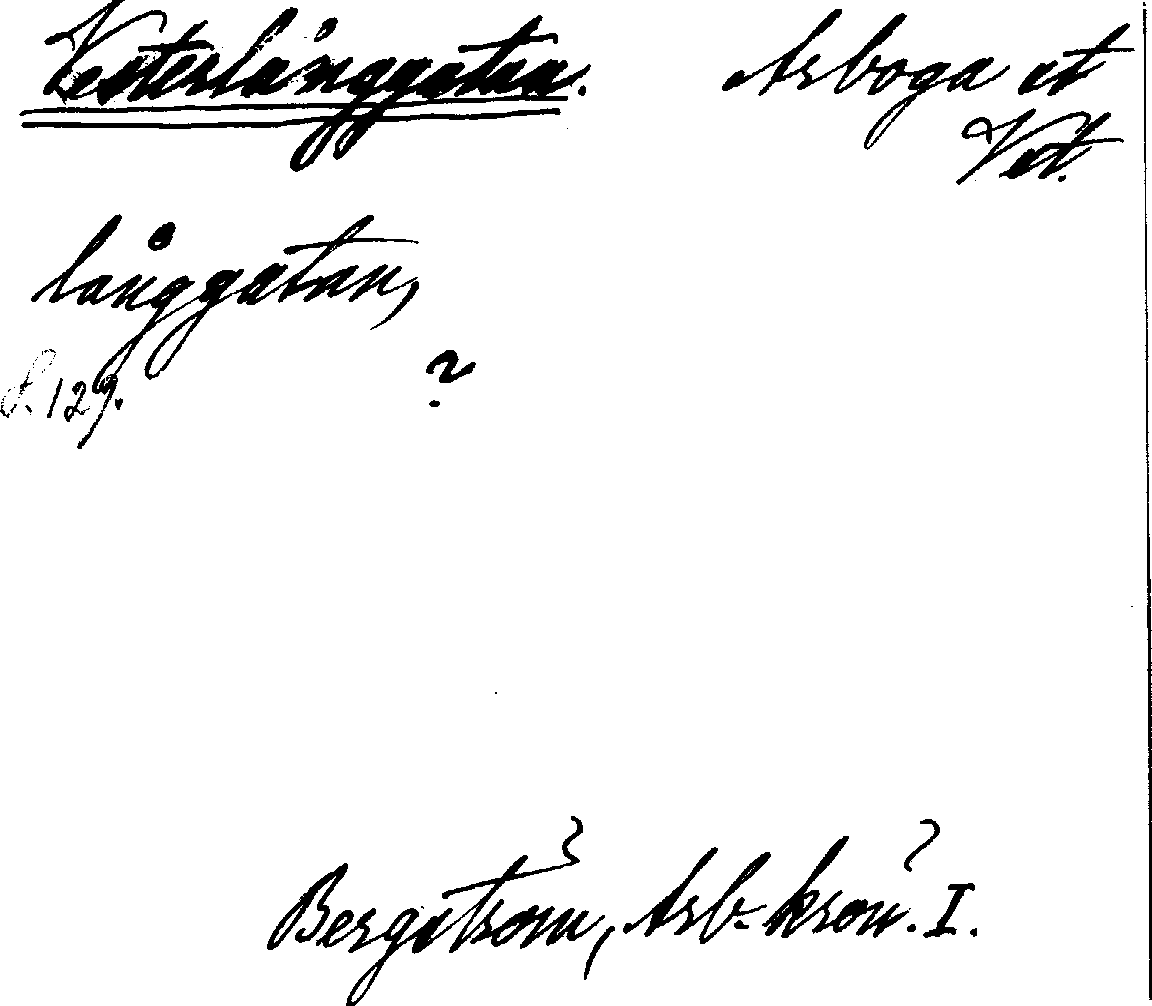 Vesterlånggatan. Arboga st
Vstl.
långgatan,
S. 129. ?
Bergström, Arb. krön. I.